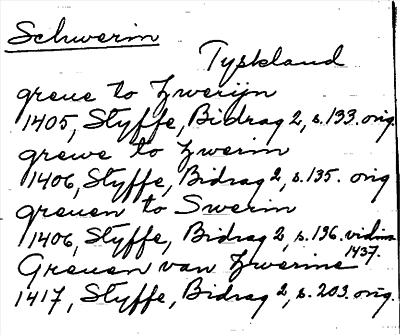 Schwerin
Tyskland
greue to Zwerijn
1405, Styffe, Bidrag 2, s. 133. orig.
grewe to Zwerin
1406, Styffe, Bidrag 2, s. 135. orig
greuen to Swerin
1406, Styffe, Bidrag 2, s. 136. vidim
1437.
Greuen van Zwerine
1417, Styffe, Bidrag 2, s. 203. orig.